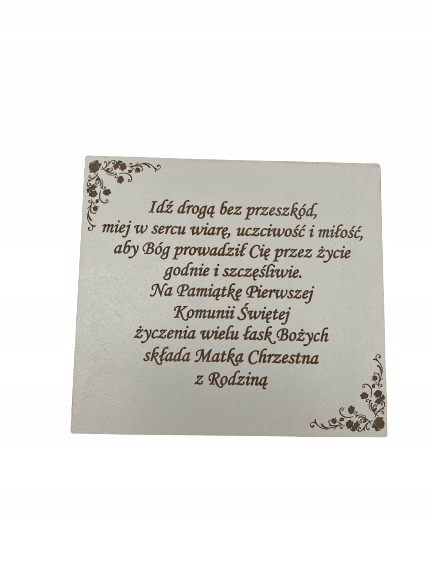 Idź drogą bez przeszkód,
miej w sercu wiarę, uczciwość i miłość,
aby Bóg prowadził Cię przez życie
godnie i szczęśliwie.
Na Pamiątkę Pierwszej
Komunii Świętej
życzenia wielu łask Bożych
składa Matka Chrzestna
z Rodziną